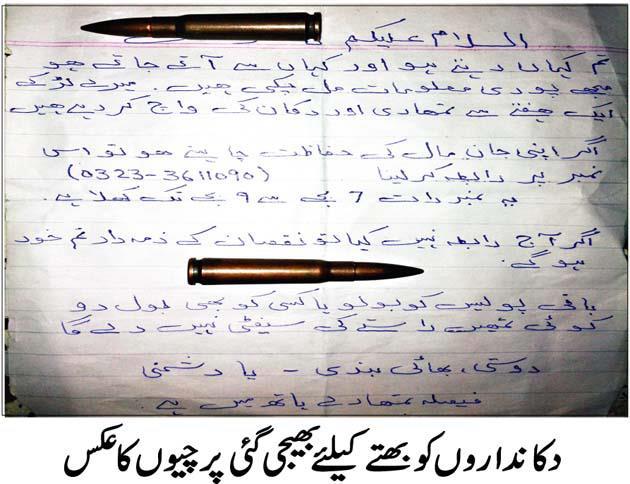 السلام علیکم
تم کہاں رہتے ہو اور کہاں سے آتے جاتے ہو
مجھے پوری معلومات مل چکی ہیں. میرے لڑکے
ایک ہفتے سے تمھاری اور دکان کی واچ کر رہے ہیں
اگر اپنی جان مال کی حفاظت چاہتے ہو تو اس
نمبر پر رابطہ کر لینا (0323-3611090)
یہ نمبر رات 7 بجے سے 9 بجے تک کھلا ہے.
اگر آج رابطہ نہیں کیا تو نقصان کے ذمہ دار تم خود
ہو گے.
باقی پولیس کو بولو یا کسی کو بھی بول دو
کوئی تمھیں راستے کی سیفٹی نہیں دے گا
دوستی، بھائی بندی - یا دشمنی
فیصلہ تمھارے ہاتھ میں ہے.
دکانداروں کو بھتے کیلئے بھیجی گئی پرچیوں کا عکس